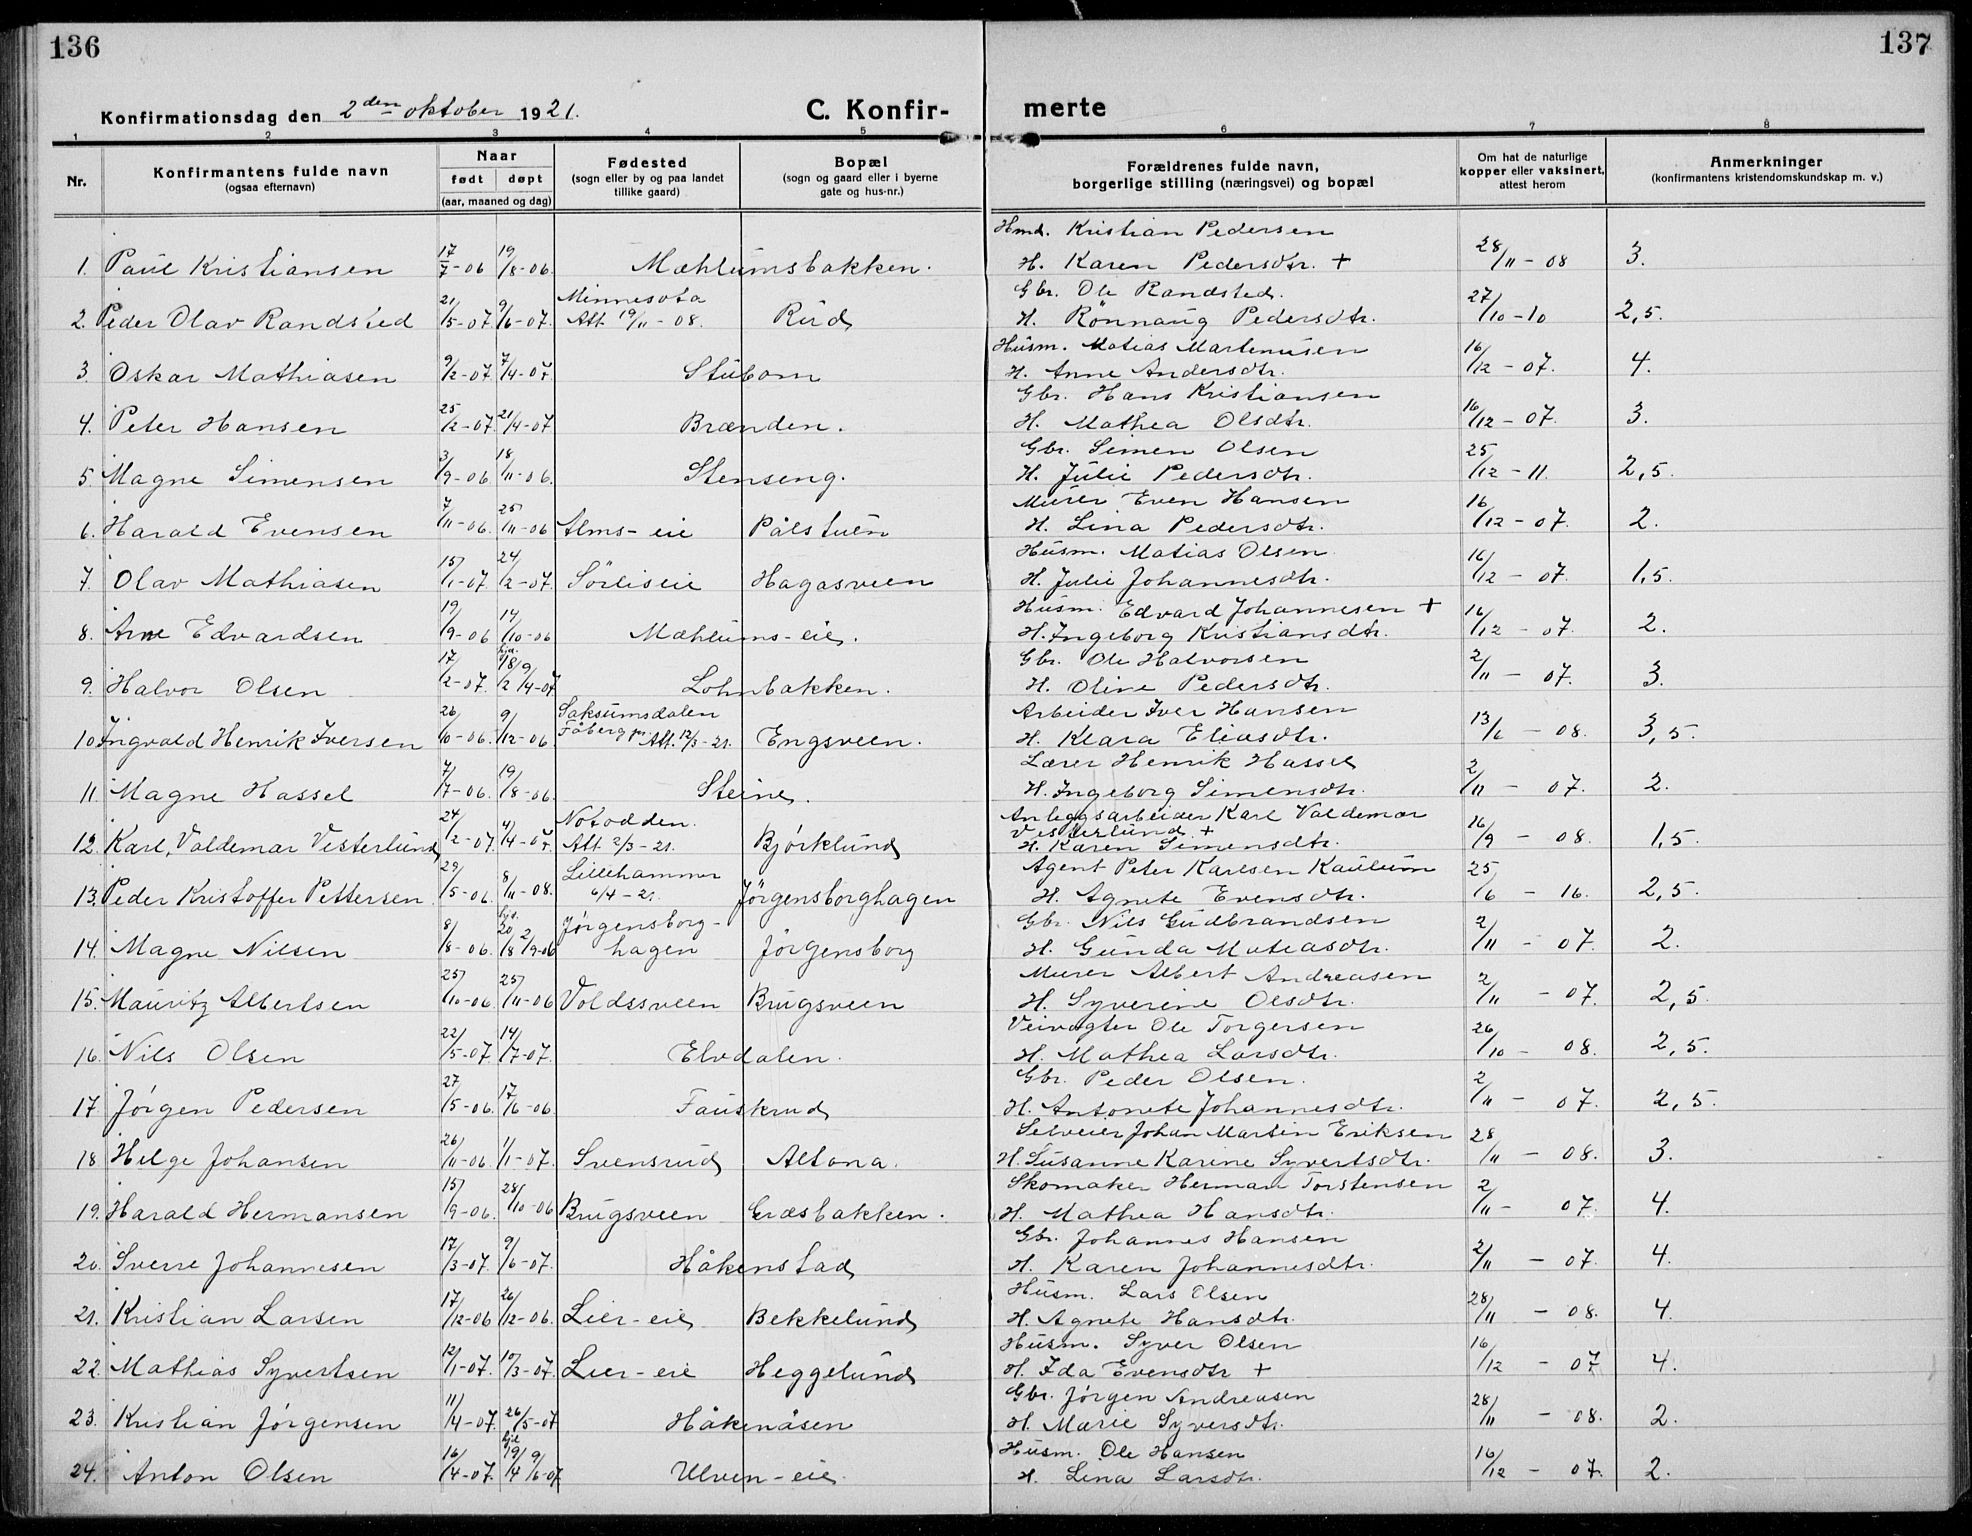 136
137
Konfirmationsdag den 2den oktober 1921.
C. Konfir-
merte
1 2 3 4 5 6 7 8
Nr.
Konfirmantens fulde navn
(ogsaa efternavn)
Naar
født døpt
(aar, maaned og dag)
Fødested
(sogn eller by og paa landet
tillike gaard)
Bopæl
(sogn og gaard eller i byerne
gate og hus-nr.)
Forældrenes fulde navn,
borgerlige stilling (næringsvei) og bopæl
Om hat de naturlige
kopper eller vaksinert,
attest herom
Anmerkninger
(konfirmantens kristendomskundskap m. v.)
Hmd. Kristian Pedersen
1. Paul Kristiansen 17/7-06 19/8-06. Mæhlumsbakken. H. Karen Pedersdtr. + 28/11-08 3.
Minnesota Gbr. Ole Randsted.
2. Peder Olav Randsted 21/5-07. 9/6-07. Att. 19/11-08. Rud H. Rönnaug Pedersdtr. 27/10-10 2,5.
Husm. Matias Martenusen
3. Oskar Mathiasen 9/2-07. 7/4-07. Stubom H. Anne Andersdtr. 16/12-07. 4.
Gbr. Hans Kristiansen
4. Peter Hansen 25/2-07. 21/4-07 Brænden. H. Mathea Olsdtr. 16/12-07. 3.
Gbr. Simen Olsen
5. Magne Simensen 3/9-06. 18/11-06. Stenseng. H. Julie Pedersdtr. 25/12-11. 2,5.
Murer Even Hansen
6. Harald Evensen 7/11-06. 25/11-06 Alms-eie Pålstuen H. Lina Pedersdtr. 16/12-07. 2.
Husm. Matias Olsen
7. Olav Mathiasen 15/1-07. 24/2-07. Sörliseie Hagasveen H. Julie Johannesdtr. 16/12-07. 1,5.
Husm. Edvard Johannesen +
8. Arne Edvardsen 19/9-06 14/10-06 Mæhlums-eie. H. Ingeborg Kristiansdtr. 16/12-07. 2.
Gbr. Ole Halvorsen
9. Halvor Olsen 17/2-07. hjd. 18/2 9/4-07 Lohnbakken. H. Oline Pedersdtr. 2/11-07. 3.
Saksumsdalen Arbeider Iver Hansen
10. Ingvald Henrik Iversen 26/10-06. 9/12-06 Fåberg Att. 12/3-21. Engsveen. H. Klara Eliasdtr. 13/6-08. 3,5.
Lærer Henrik Hassel
11. Magne Hassel 7/7-06. 19/8-06. Steine. H. Ingeborg Simensdtr. 2/11-07. 2.
Notodden. Anleggsarbeider Karl Valdemar
Vesterlund +
12. Karl Valdemar Vesterlund 24/2-07. 4/4-07 Att. 2/3-21. Bjørklund H. Karen Simensdtr. 16/9-08. 1,5.
Lillehammer Agent Peter Karlsen Kaulum
13. Peder Kristoffer Pettersen 29/5-06. 8/11-08. 6/4-21. Jørgensborghagen H. Agnete Evensdtr. 25/6-16. 2,5.
Jørgensborg- Gbr. Nils Gudbrandsen
14. Magne Nilsen 8/8-06. hjd. 20/8 2/9-06 hagen Jørgensborg H. Gunda Matiasdtr. 2/11-07. 2.
Murer Albert Andreasen
15. Mauritz Albertsen 25/10-06. 25/11-06 Voldssveen Brugsveen H. Syverine Olsdtr. 2/11-07. 2,5.
Veivogter Ole Torgersen
16. Nils Olsen 22/5-07. 14/7-07. Elvdalen. H. Mathea Larsdtr. 26/10-08. 2,5.
Gbr. Peder Olsen.
17. Jörgen Pedersen 27/5-06. 17/6-06. Fauskrud H. Antonete Johannesdtr. 2/11-07. 2,5.
Selveier Johan Martin Eriksen
18. Helge Johansen 26/11-06. 1/1-07. Svensrud Altona. H. Susanne Karine Syvertsdtr. 28/11-08. 3.
Skomaker Herman Torstensen
19. Harald Hermansen 15/9-06. 28/10-06 Brugsveen Græsbakken. H. Mathea Hansdtr. 2/11-07. 4.
Gbr. Johannes Hansen
20. Sverre Johannesen 17/3-07. 9/6-07. Håkenstad H. Karen Johannesdtr. 2/11-07. 4.
Husm. Lars Olsen
21. Kristian Larsen 17/12-06 26/12-06. Lier-eie Bekkelund H. Agnete Hansdtr. 28/11-08. 4.
Husm. Syver Olsen
22. Mathias Syvertsen 12/1-07. 10/3-07. Lier-eie Heggelund H. Ida Evensdtr + 16/12-07 4.
Gbr. Jørgen Andreasen
23. Kristian Jørgensen 11/4-07. 26/5-07 Håkenåsen H. Marie Syversdtr. 28/11-08. 2.
Husm. Ole Hansen
24. Anton Olsen 16/4-07. hjd 19/4 9/6-07 Ulven-eie. H. Lina Larsdtr. 16/12-07. 2.